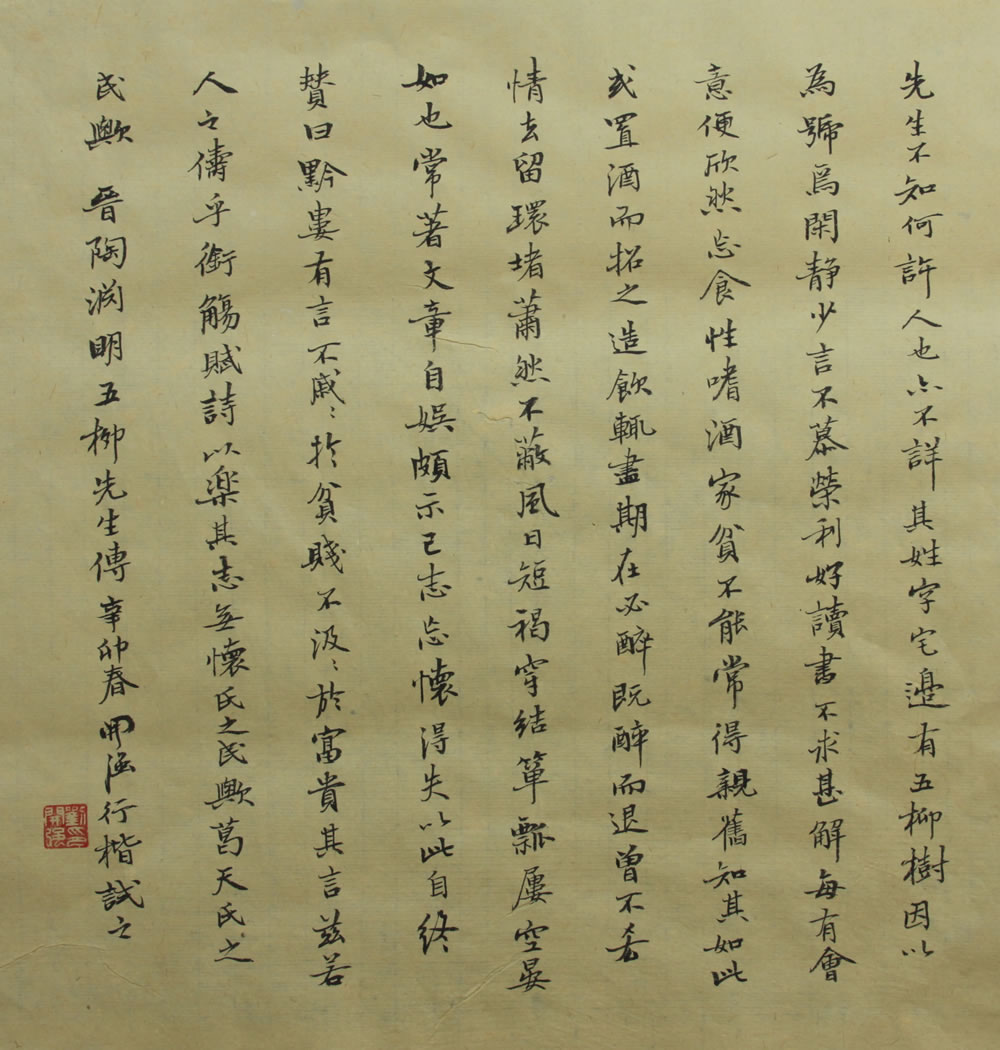 先生不知何許人也亦不詳其姓字宅邊有五柳樹因以
為號焉閑靜少言不慕榮利好讀書不求甚解每有會
意便欣然忘食性嗜酒家貧不能常得親舊知其如此
或置酒而招之造飲輒盡期在必醉既醉而退曾不吝
情去留環堵蕭然不蔽風日短褐穿結簞瓢屢空晏
如也常著文章自娛頗示己志忘懷得失以此自終
贊曰黔婁有言不戚〻於貧賤不汲〻於富貴其言茲若
人之儔乎銜觴賦詩以樂其志無懷氏之民歟葛天氏之
民歟 晉陶淵明五柳先生傳 辛卯春開強行楷試之
劉印開強